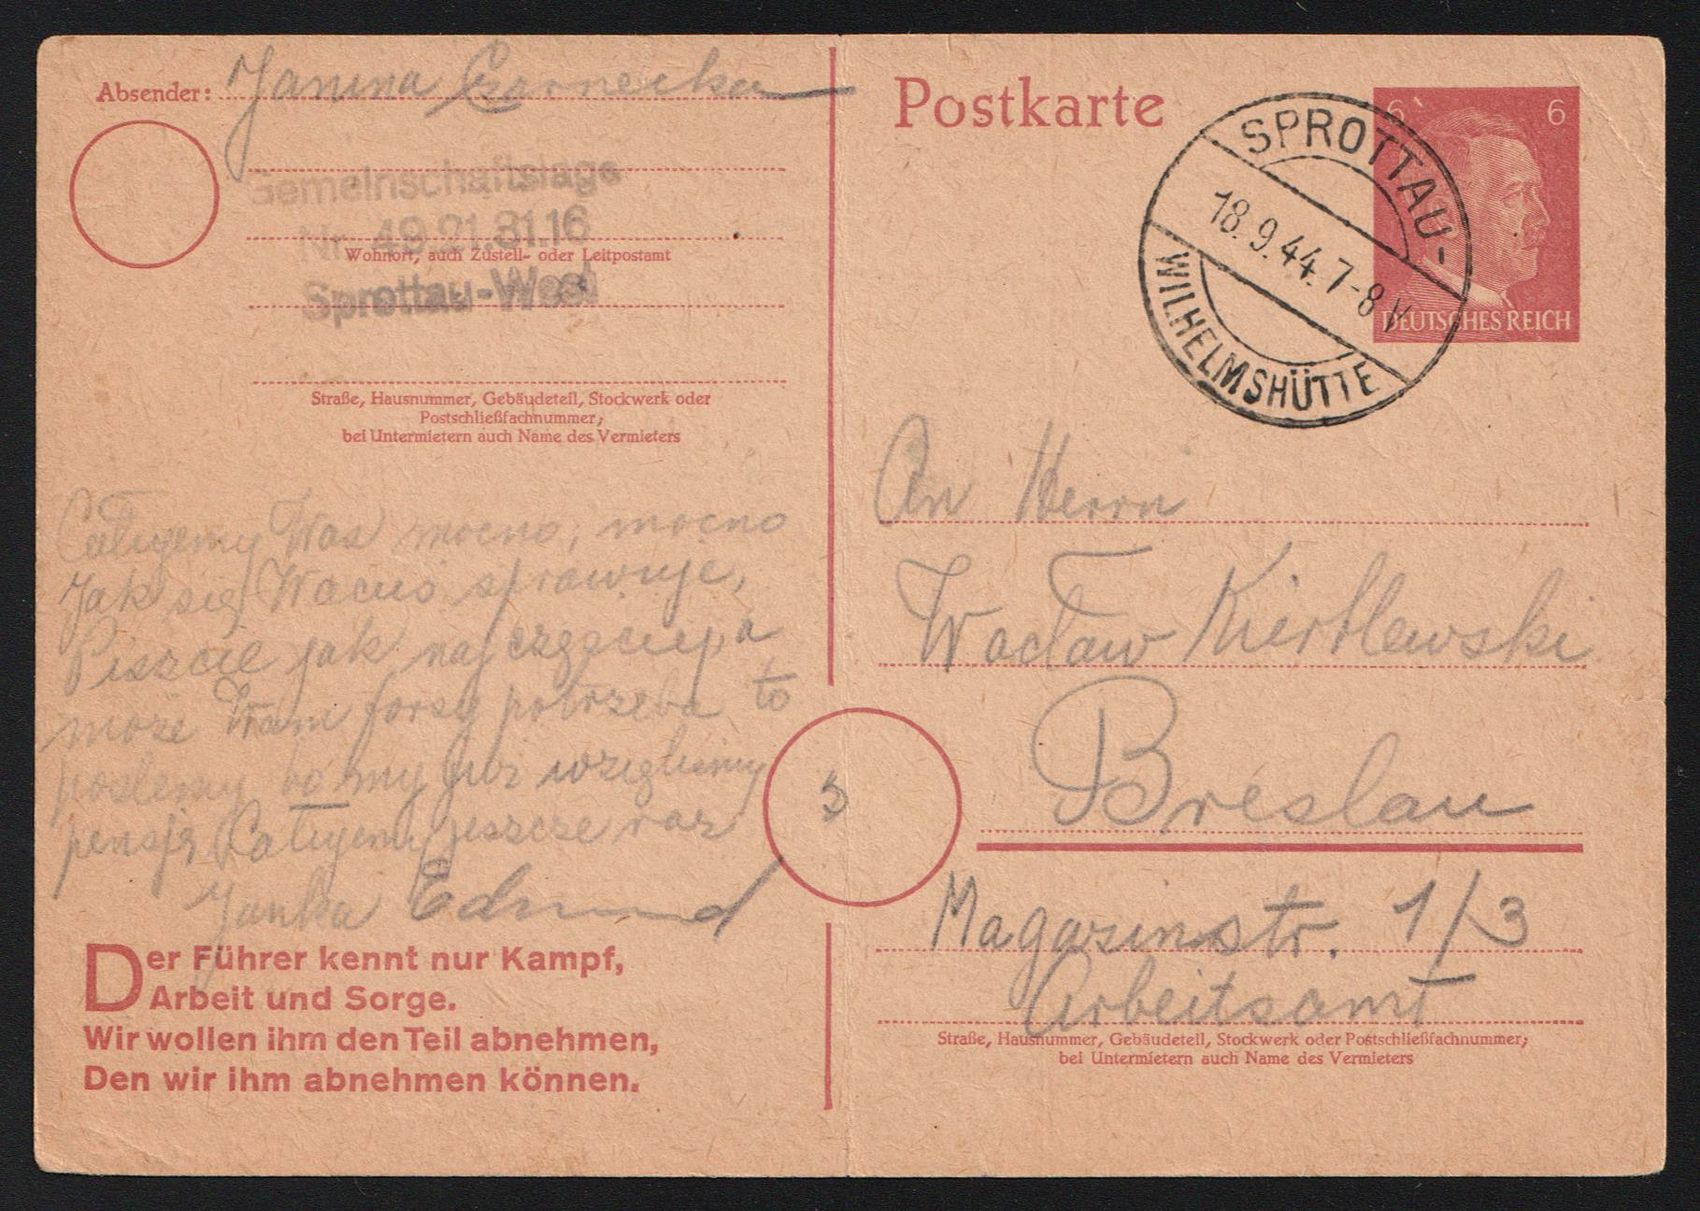 Absender: Janina Czarnecka
Gemeinschaftslage
Nr. 49.21.31.16
Wohnort, auch Zustell- oder Leitpostamt
Sprottau-West
Straße, Hausnummer, Gebäudeteil, Stockwerk oder
Postschließfachnummer;
bei Untermietern auch Name des Vermieters
Całujemy Was mocno, mocno
Jak się Wacuś sprawuje,
Piszcie jak najczęściej, a
może Wam forsy potrzeba to
poślemy bo my już wzięliśmy
pensję Całujemy jeszcze raz
Janka Edmund
Der Führer kennt nur Kampf,
Arbeit und Sorge.
Wir wollen ihm den Teil abnehmen,
Den wir ihm abnehmen können.
Postkarte
6 6
DEUTSCHES REICH
SPROTTAU-
18.9.44.7-8 V
WILHELMSHÜTTE
An Herrn
Wacław
Breslau
Magazinstr. 1/3
Arbeitsamt
Straße, Hausnummer, Gebäudeteil, Stockwerk oder Postschließfachnummer;
bei Untermietern auch Name des Vermieters